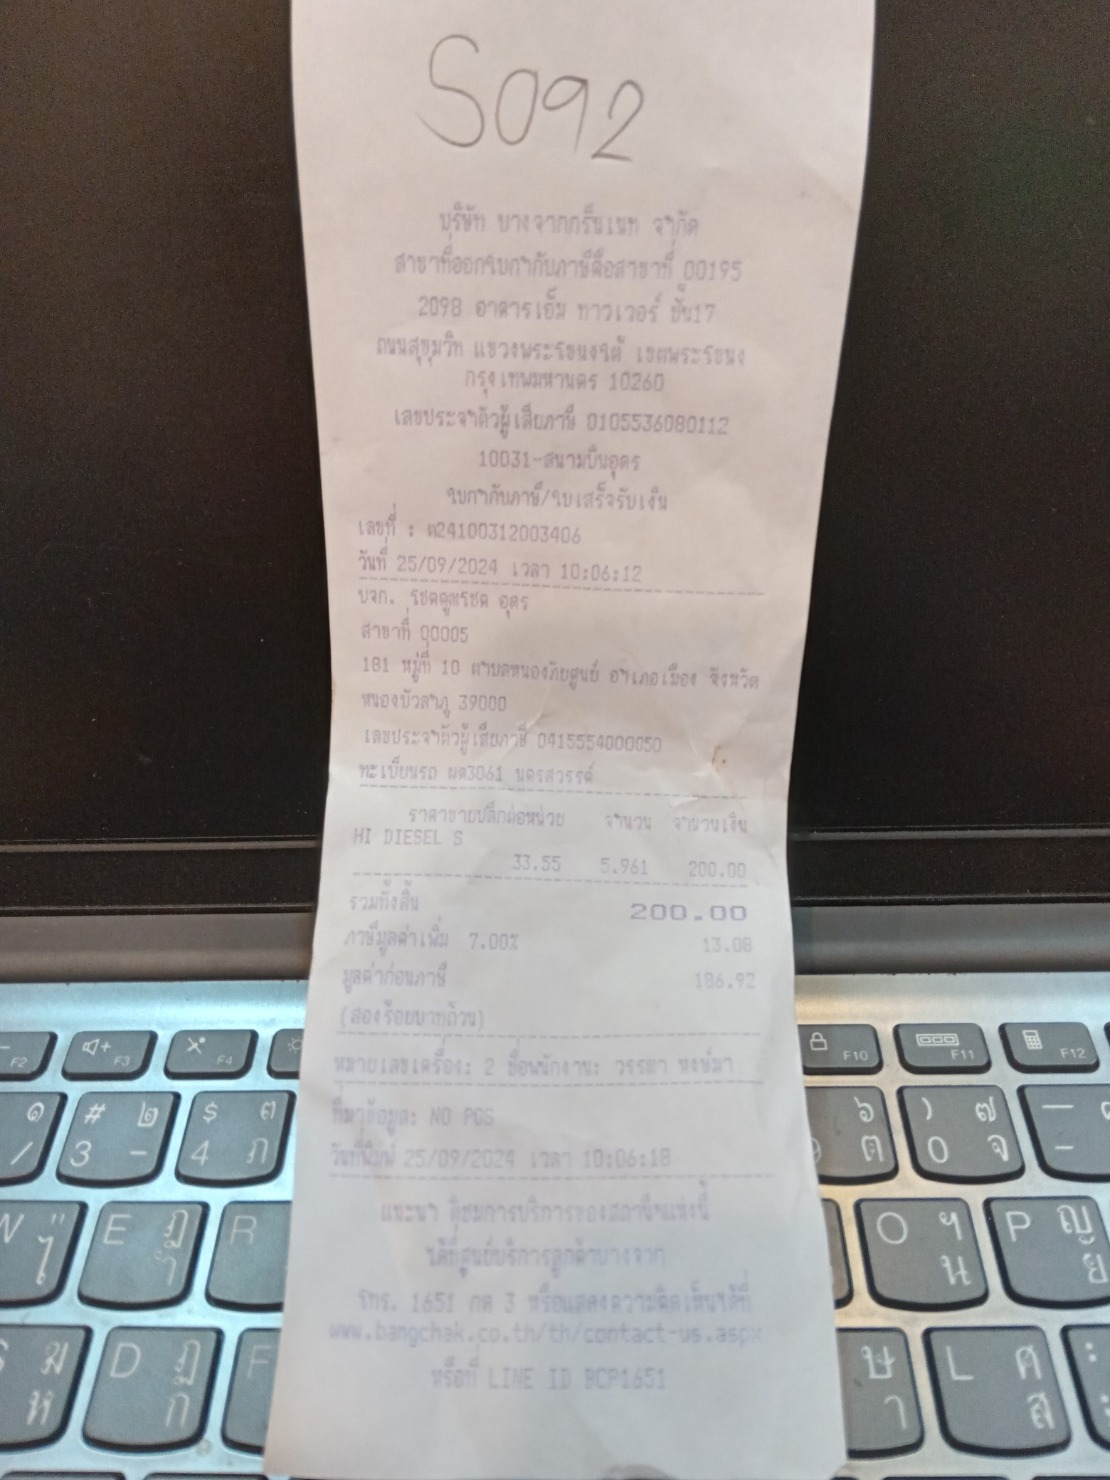 S092
บริษัท บางจากกรีนเนท จำกัด
สาขาที่ออกใบกำกับภาษีคือสาขาที่ 00195
2098 อาคารเอ็ม ทาวเวอร์ ชั้น17
ถนนสุขุมวิท แขวงพระโขนงใต้ เขตพระโขนง
กรุงเทพมหานคร 10260
เลขประจำตัวผู้เสียภาษี 0105536080112
10031-สนามบินอุดร
ใบกำกับภาษี/ใบเสร็จรับเงิน
เลขที่ : ต24100312003406
วันที่ 25/09/2024 เวลา 10:06:12
บจก. โชคคูณโชค อุดร
สาขาที่ 00005
181 หมู่ที่ 10 ตำบลหนองภัยศูนย์ อำเภอเมือง จังหวัด
หนองบัวลำภู 39000
เลขประจำตัวผู้เสียภาษี 0415554000050
ทะเบียนรถ ผต3061 นครสวรรค์
ราคาขายปลีกต่อหน่วย จำนวน จำนวนเงิน
HI DIESEL S
33.55 5.961 200.00
รวมทั้งสิ้น 200.00
ภาษีมูลค่าเพิ่ม 7.00% 13.08
มูลค่าก่อนภาษี 186.92
(สองร้อยบาทถ้วน)
หมายเลขเครื่อง: 2 ชื่อพนักงาน: วรรษา หงษ์มา
ที่มาข้อมูล: NO POS
วันที่พิมพ์ 25/09/2024 เวลา 10:06:18
แนะนำ ติชมการบริการของสถานีฯแห่งนี้
ได้ที่ศูนย์บริการลูกค้าบางจาก
โทร. 1651 กด 3 หรือแสดงความคิดเห็นได้ที่
www.bangchak.co.th/th/contact-us.aspx
หรือที่ LINE ID BCP1651